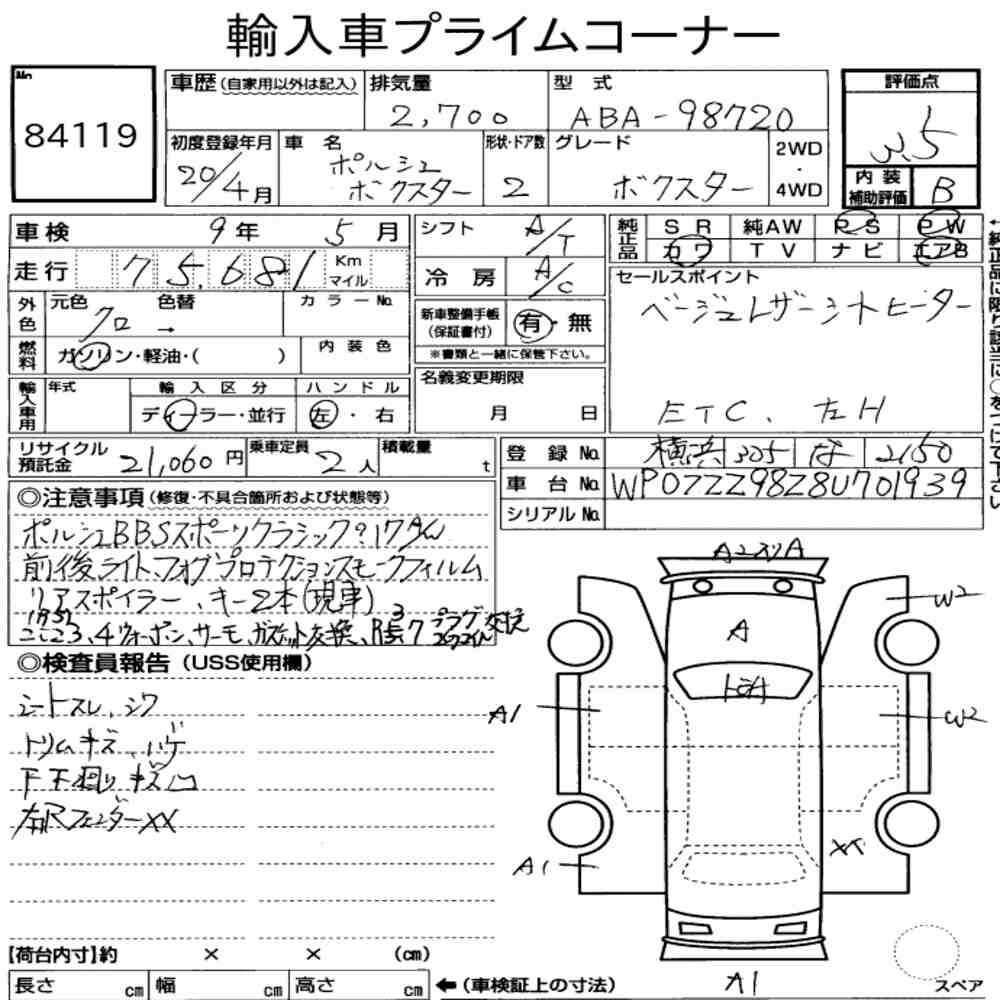 輸入車プライムコーナー
No.
84119
車歴 (自家用以外は記入)
排気量
2,700
型 式
ABA-98720
評価点
3.5
初度登録年月
20/4月
車 名
ポルシェ
ボクスター
形状・ドア数
2
グレード
ボクスター
2WD
・
4WD
内 装
補助評価
B
車検
9年 5月
走行
75,681
Km
マイル
シフト
A/T
冷 房
A/C
純正品
S R
純AW
P S
P W
カワ
T V
ナビ
エアB
←純正品に限り該当に○をつけて下さい
外色
元色
クロ
色替
→
カラーNo.
燃料
ガソリン・軽油・( )
内 装 色
新車整備手帳
(保証書付)
有・無
※書類と一緒に保管下さい。
セールスポイント
ベージュレザーシートヒーター
ETC、左H
輸入車用
年式
輸 入 区 分
ディーラー・並行
ハ ン ド ル
左・右
名義変更期限
月 日
リサイクル
預託金
21,060円
乗車定員
2人
積載量
t
登 録 No.
横浜 305 は 2150
車 台 No.
WP0ZZZ98Z8U701939
シリアルNo.
◎注意事項 (修復・不具合箇所および状態等)
ポルシェBBSスポーツクラシック
前後ライトフォグプロテクションスモークフィルム
リアスポイラー、キー2本(現車)
4ウォーポン、サーモ、ガスケット交換、R5
プラグ
交換
◎検査員報告 (USS使用欄)
シートスレ、シワ
トリムキズ、ハゲ
下下廻りキズ凹
フェンダーXX
A
W2
A1
W2
A1
XX
A1
【荷台内寸】約 × × (cm)
長さ cm
幅 cm
高さ cm
← (車検証上の寸法)
スペア